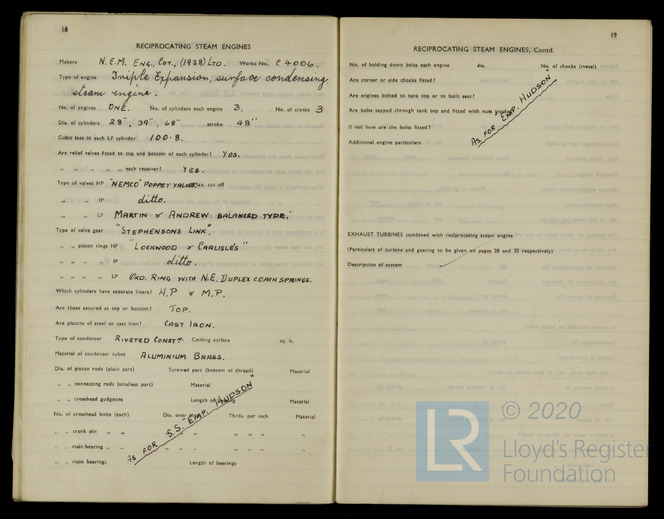 18
RECIPROCATING STEAM ENGINES
Makers N.E.M. ENG., COY., (1938) LTD. Works No. C 4006.
Type of engine Triple Expansion, surface condensing
steam engine.
No. of engines ONE. No. of cylinders each engine 3. No. of cranks 3
Dia. of cylinders 28", 39", 68" stroke 48"
Cubic feet in each LP cylinder 100.8.
Are relief valves fitted to top and bottom of each cylinder? YES.
„ „ „ „ „ each receiver? YES.
Type of valves HP "NEMCO" POPPET VALVES. Max. cut off
„ „ IP ditto.
„ „ LP MARTIN & ANDREW BALANCED TYPE,"
Type of valve gear "STEPHENSONS LINK"
„ „ piston rings HP "LOCKWOOD & CARLISLE'S"
„ „ „ „ IP ditto.
„ „ „ „ LP ORD. RING WITH N.E. DUPLEX COACH SPRINGS.
Which cylinders have separate liners? H.P & M.P.
Are these secured at top or bottom? TOP.
Are pistons of steel or cast iron? CAST IRON.
Type of condenser RIVETED CONSTN. Cooling surface sq. ft.
Material of condenser tubes ALUMINIUM BRASS.
Dia. of piston rods (plain part) Screwed part (bottom of thread) Material
„ „ connecting rods (smallest part) Material
„ „ crosshead gudgeons Length of Material
No. of crosshead bolts (each) Dia. over Thrds. per inch Material
„ „ crank pin „ „ „ „ „ „ „
„ „ main bearing „ „ „ „ „ „ „
„ „ main bearings Length of bearings
AS FOR S.S. "EMP. HUDSON"
19
RECIPROCATING STEAM ENGINES, Contd.
No. of holding down bolts each engine dia. No. of chocks (metal)
Are corner or side chocks fitted?
Are engines bolted to tank top or to built seat?
Are bolts tapped through tank top and fitted with nuts inside?
If not how are the bolts fitted?
Additional engine particulars
AS FOR EMP. HUDSON"
EXHAUST TURBINES combined with reciprocating steam engine
(Particulars of turbine and gearing to be given on pages 28 and 32 respectively)
Description of system
LR
© 2020
Lloyd's Register
Foundation